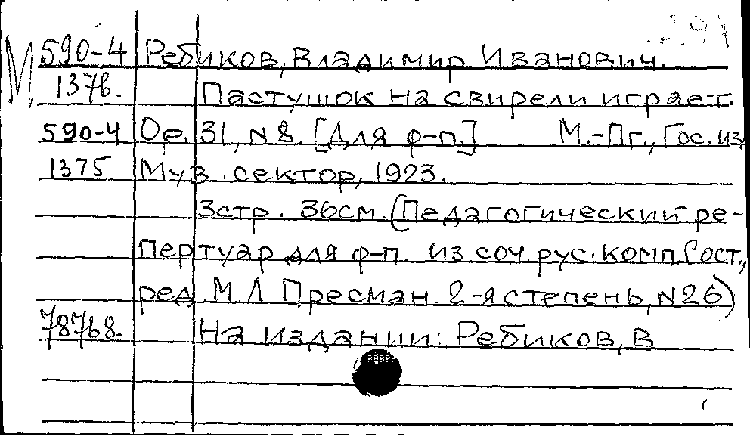 М 590-4 Ребиков, Владимир Иванович.
1376. Пастушок на свирели играет.
590-4 Ор. 31, №8. [Для ф-п.] М.-Пг., Гос. из
1375 Муз. сектор, 1923.
3 стр. 36 см. (Педагогический ре-
пертуар для ф-п. из соч. рус. комп. Сост.,
ред. М Л Пресман. 2-я степень, №26)
78768. На издании: Ребиков, В